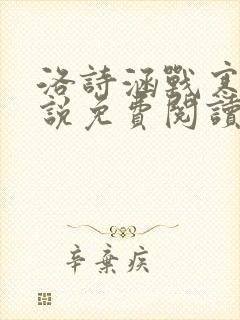 洛詩涵戰寒
說免費閱讀
辛棄疾